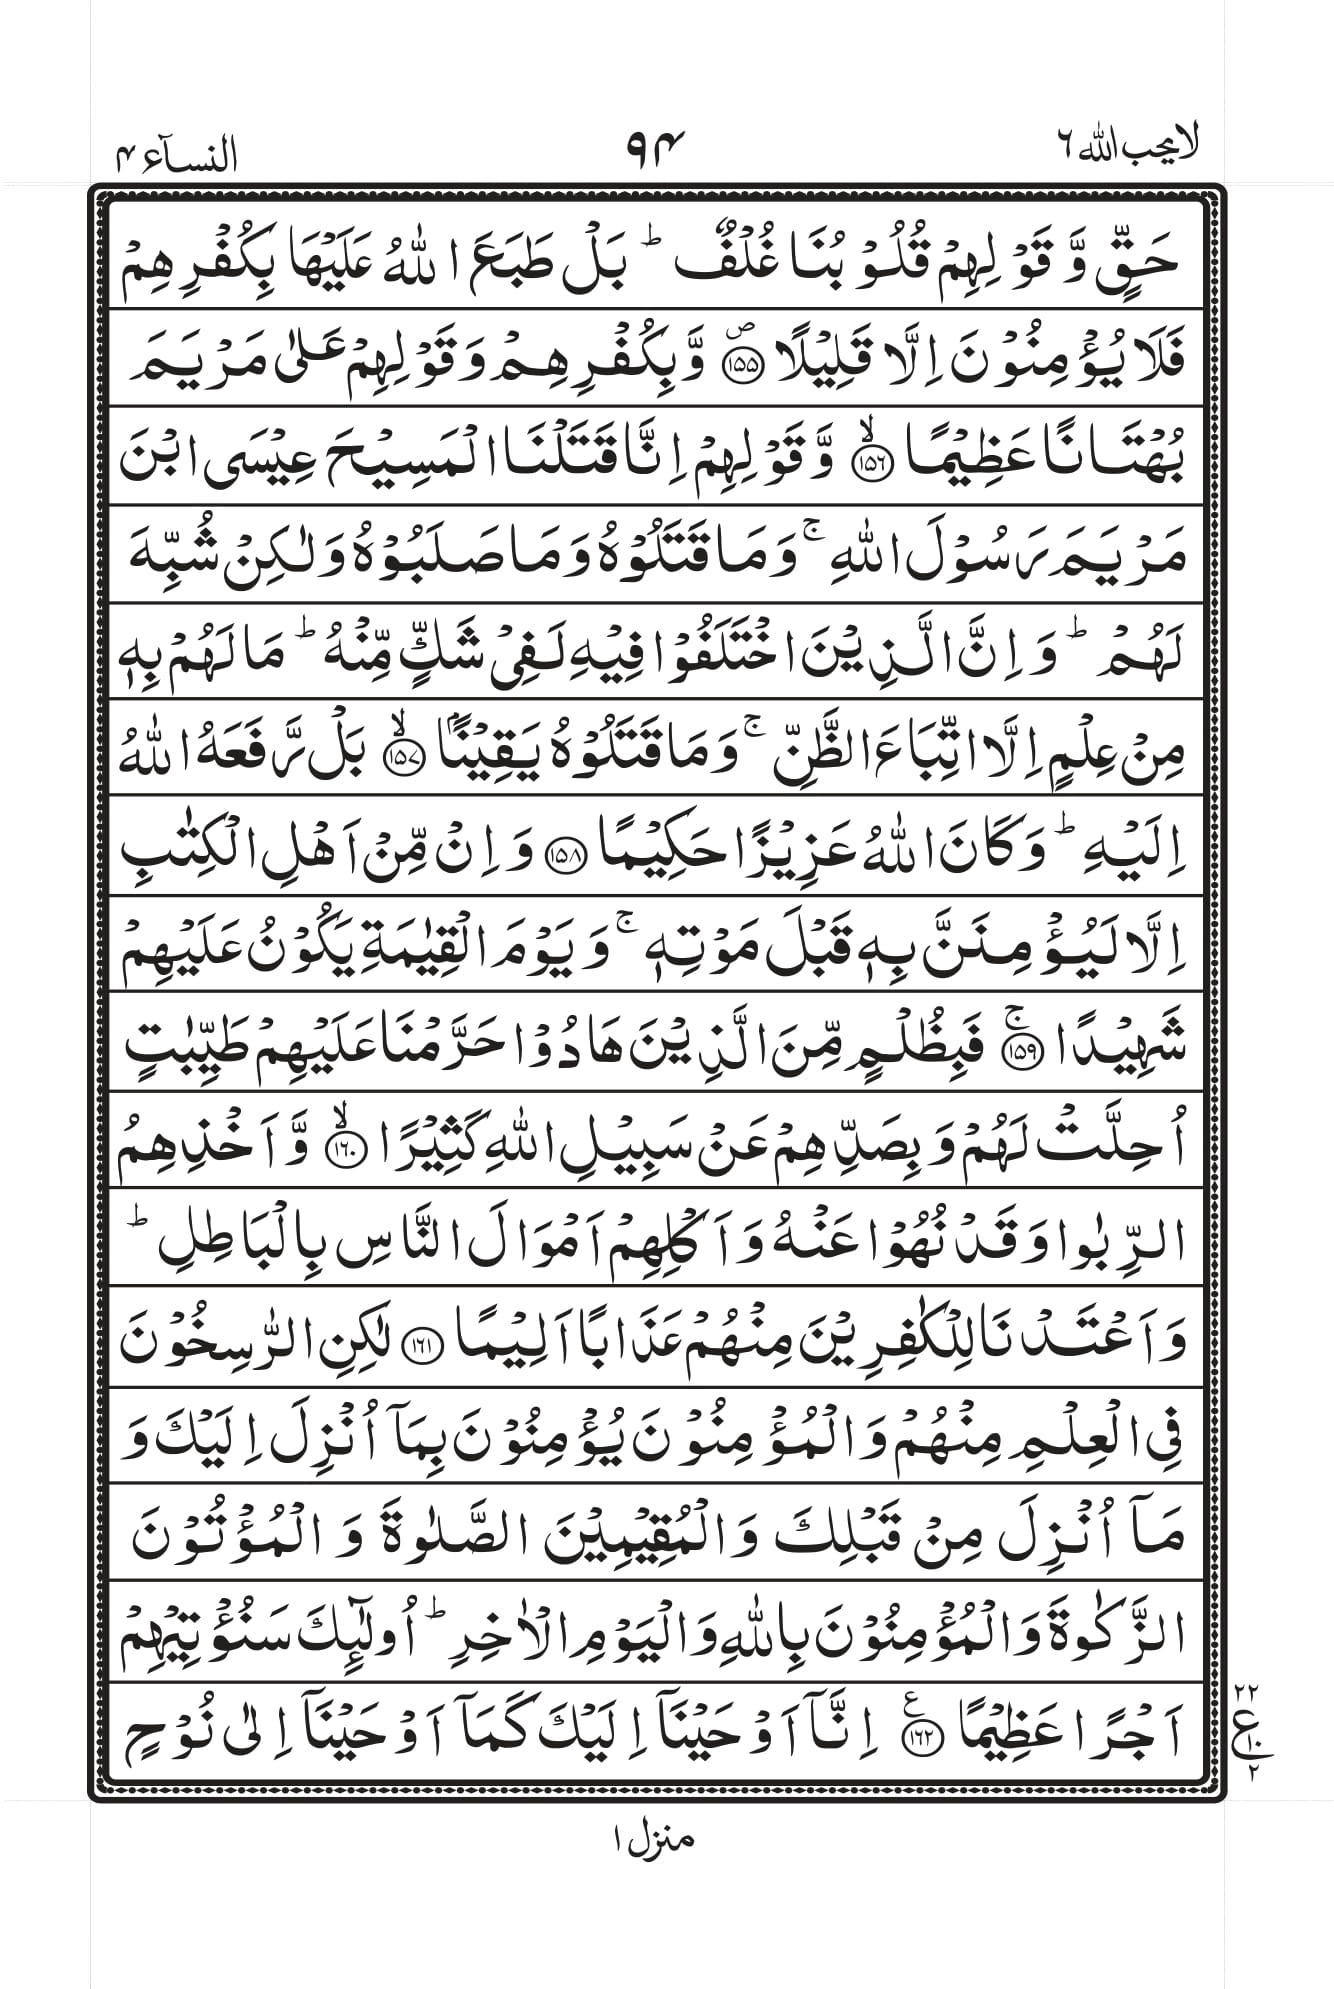 لا يحب الله ٦
٩٤
النسآء ٤
حَقٍّ وَّقَوْلِهِمْ قُلُوْبُنَا غُلْفٌ ؕ بَلْ طَبَعَ اللّٰهُ عَلَيْهَا بِكُفْرِهِمْ
فَلَا يُؤْمِنُوْنَ اِلَّا قَلِيْلًا ۪﴿۱۵۵﴾ وَّبِكُفْرِهِمْ وَقَوْلِهِمْ عَلٰى مَرْيَمَ
بُهْتَانًا عَظِيْمًا ۙ﴿۱۵۶﴾ وَّقَوْلِهِمْ اِنَّا قَتَلْنَا الْمَسِيْحَ عِيْسَى ابْنَ
مَرْيَمَ رَسُوْلَ اللّٰهِ ۚ وَمَا قَتَلُوْهُ وَمَا صَلَبُوْهُ وَلٰكِنْ شُبِّهَ
لَهُمْ ؕ وَاِنَّ الَّذِيْنَ اخْتَلَفُوْا فِيْهِ لَفِيْ شَكٍّ مِّنْهُ ؕ مَا لَهُمْ بِهٖ
مِنْ عِلْمٍ اِلَّا اتِّبَاعَ الظَّنِّ ۚ وَمَا قَتَلُوْهُ يَقِيْنًۢا ۙ﴿۱۵۷﴾ بَلْ رَّفَعَهُ اللّٰهُ
اِلَيْهِ ؕ وَكَانَ اللّٰهُ عَزِيْزًا حَكِيْمًا ﴿۱۵۸﴾ وَاِنْ مِّنْ اَهْلِ الْكِتٰبِ
اِلَّا لَيُؤْمِنَنَّ بِهٖ قَبْلَ مَوْتِهٖ ۚ وَيَوْمَ الْقِيٰمَةِ يَكُوْنُ عَلَيْهِمْ
شَهِيْدًا ۚ﴿۱۵۹﴾ فَبِظُلْمٍ مِّنَ الَّذِيْنَ هَادُوْا حَرَّمْنَا عَلَيْهِمْ طَيِّبٰتٍ
اُحِلَّتْ لَهُمْ وَبِصَدِّهِمْ عَنْ سَبِيْلِ اللّٰهِ كَثِيْرًا ۙ﴿۱۶۰﴾ وَّاَخْذِهِمُ
الرِّبٰوا وَقَدْ نُهُوْا عَنْهُ وَاَكْلِهِمْ اَمْوَالَ النَّاسِ بِالْبَاطِلِ ؕ
وَاَعْتَدْنَا لِلْكٰفِرِيْنَ مِنْهُمْ عَذَابًا اَلِيْمًا ﴿۱۶۱﴾ لٰكِنِ الرّٰسِخُوْنَ
فِي الْعِلْمِ مِنْهُمْ وَالْمُؤْمِنُوْنَ يُؤْمِنُوْنَ بِمَاۤ اُنْزِلَ اِلَيْكَ وَ
مَاۤ اُنْزِلَ مِنْ قَبْلِكَ وَالْمُقِيْمِيْنَ الصَّلٰوةَ وَالْمُؤْتُوْنَ
الزَّكٰوةَ وَالْمُؤْمِنُوْنَ بِاللّٰهِ وَالْيَوْمِ الْاٰخِرِ ؕ اُولٰٓئِكَ سَنُؤْتِيْهِمْ
اَجْرًا عَظِيْمًا ﴿۱۶۲﴾ ع اِنَّاۤ اَوْحَيْنَاۤ اِلَيْكَ كَمَاۤ اَوْحَيْنَاۤ اِلٰى نُوْحٍ
۲۲
ع ۱۰
۲
منزل ١